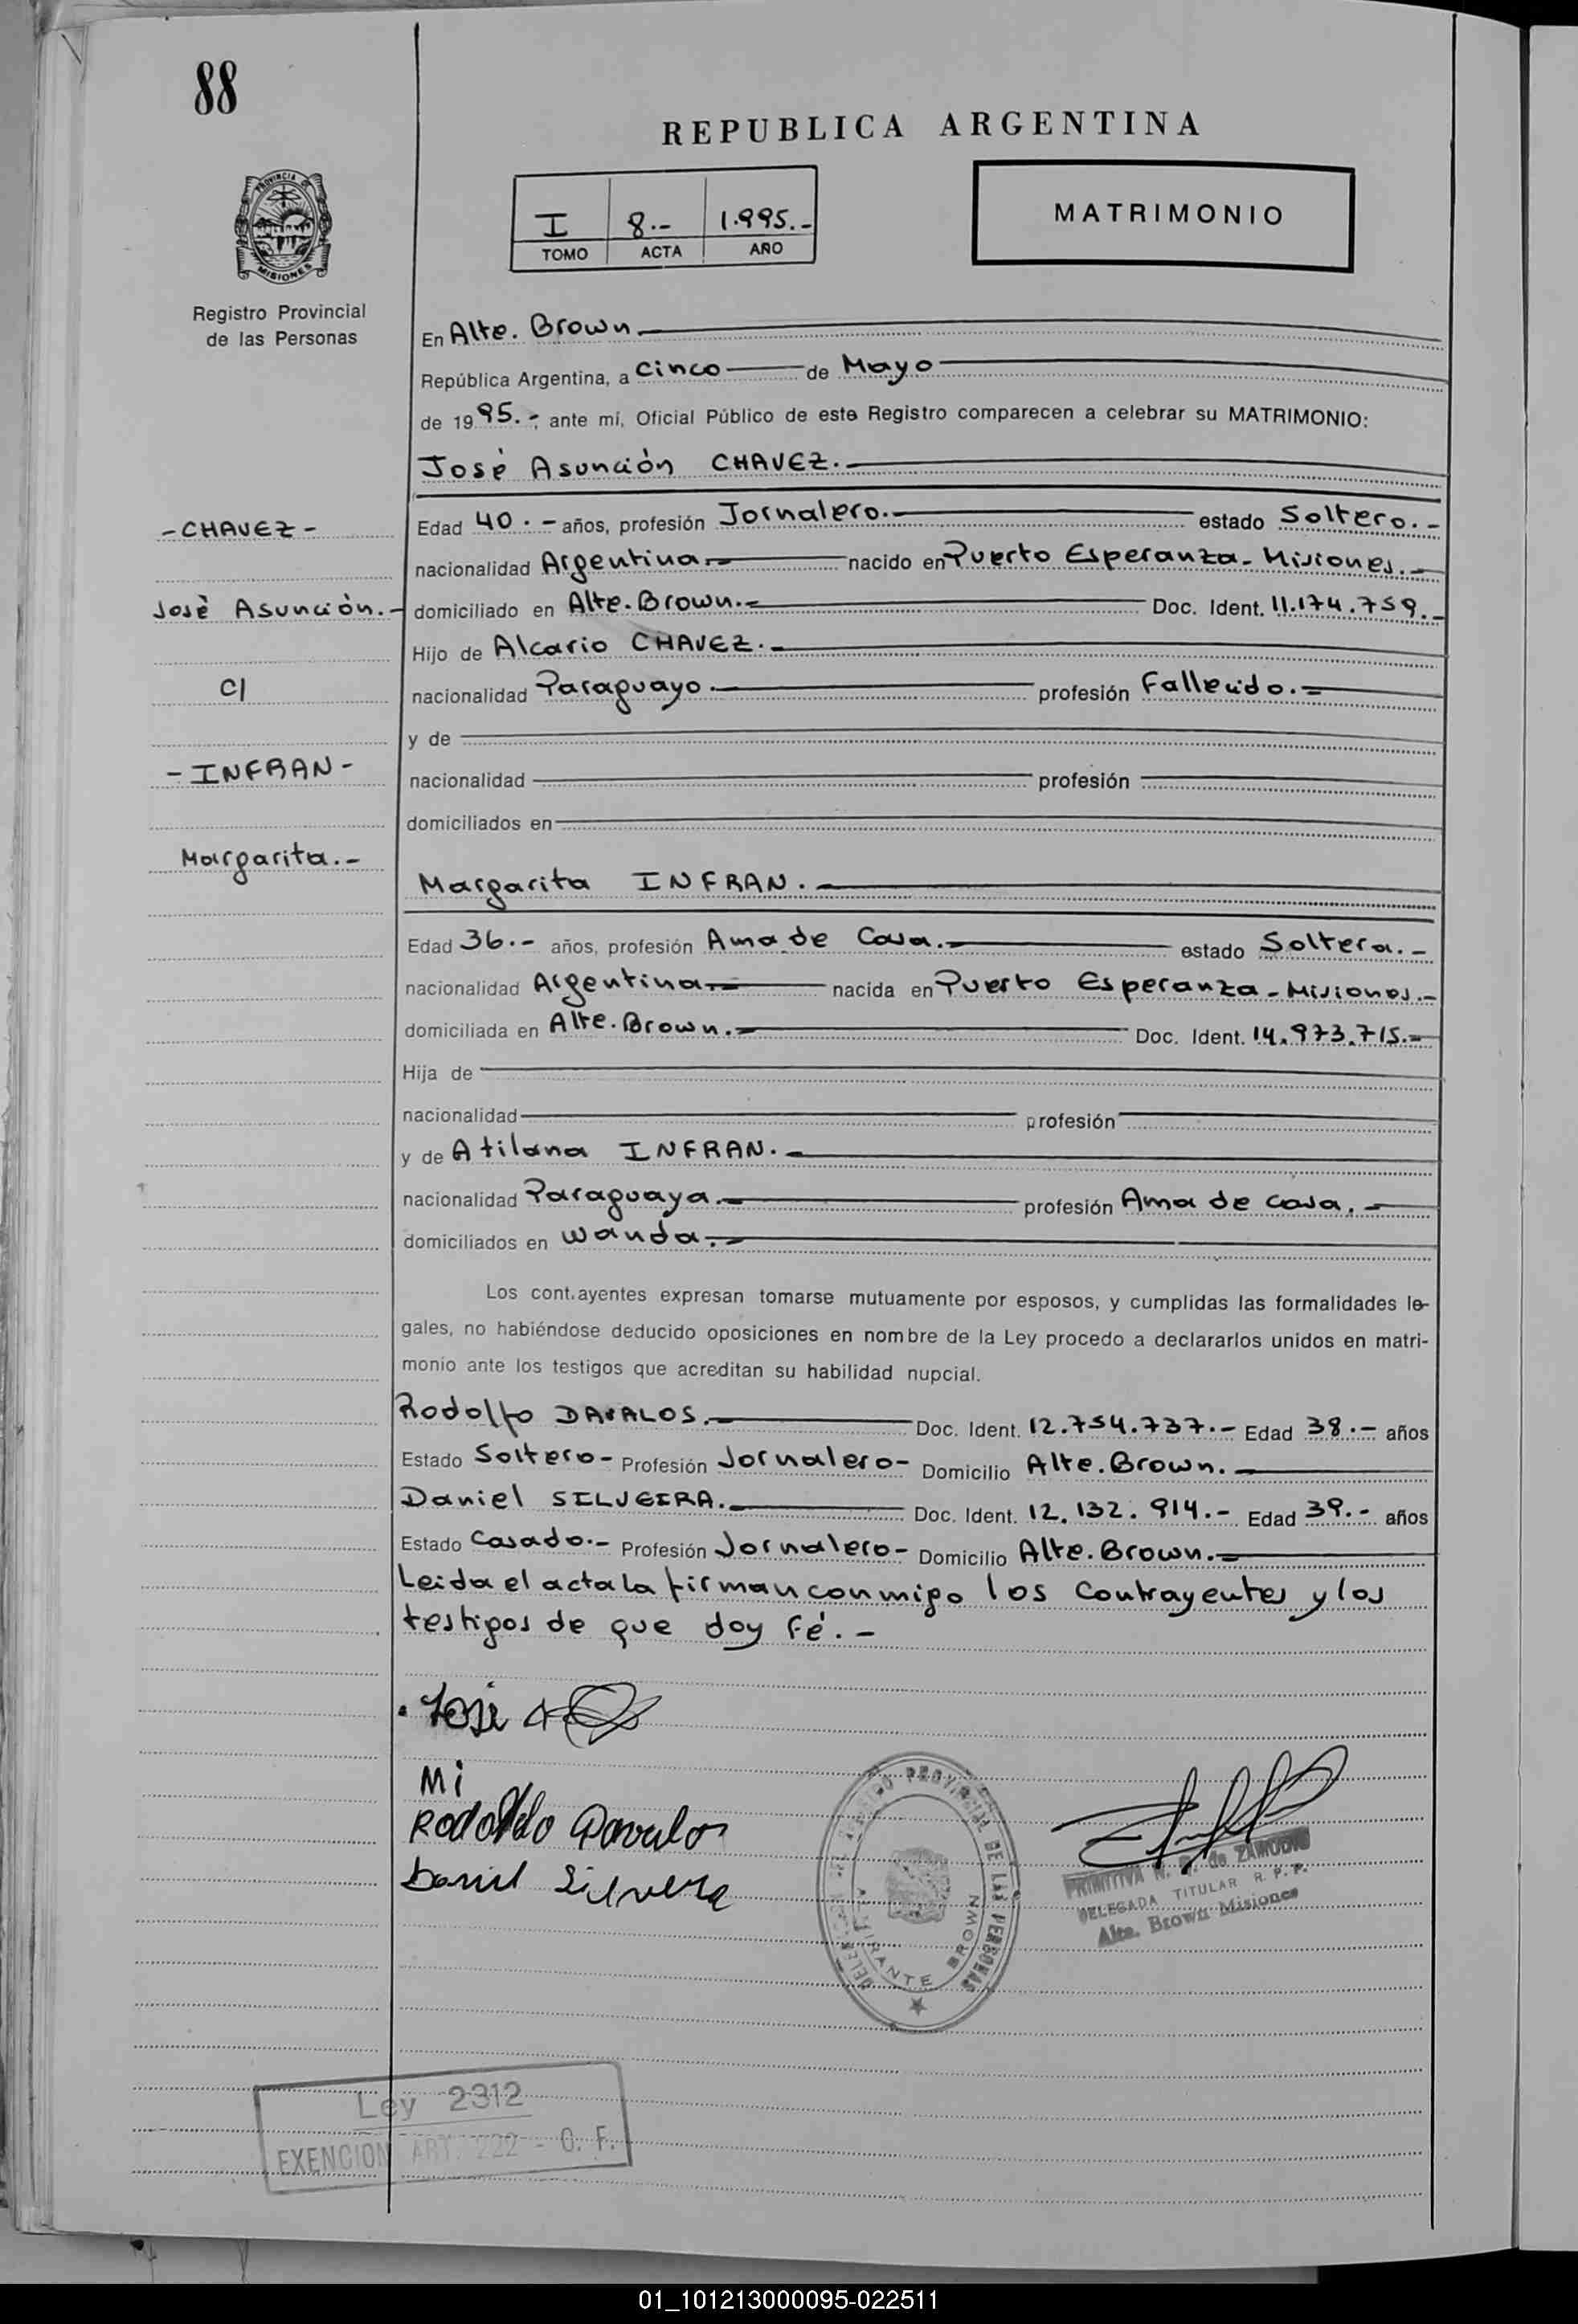 88
REPUBLICA ARGENTINA
PROVINCIA DE
MISIONES
Registro Provincial
de las Personas
I 8.- 1.995.-
TOMO ACTA AÑO
MATRIMONIO
En Alte. Brown.
República Argentina, a cinco de Mayo
de 1995.-; ante mí, Oficial Público de este Registro comparecen a celebrar su MATRIMONIO:
Josè Asunciòn CHAVEZ.
-CHAVEZ-
Edad 40.- años, profesión Jornalero.- estado Soltero.-
nacionalidad Argentina.- nacido en Puerto Esperanza-Misiones.-
Josè Asunciòn.-
domiciliado en Alte. Brown.- Doc. Ident. 11.174.759.-
Hijo de Alcario CHAVEZ.-
C/
nacionalidad Paraguayo.- profesión Fallecido.-
y de
-INFRAN-
nacionalidad profesión
domiciliados en
Margarita.-
Margarita INFRAN.-
Edad 36.- años, profesión Ama de Casa.- estado Soltera.-
nacionalidad Argentina.- nacida en Puerto Esperanza-Misiones.-
domiciliada en Alte. Brown.- Doc. Ident. 14.973.715.-
Hija de
nacionalidad profesión
y de Atilana INFRAN.-
nacionalidad Paraguaya.- profesión Ama de casa.-
domiciliados en Wanda.-
Los contrayentes expresan tomarse mutuamente por esposos, y cumplidas las formalidades le-
gales, no habiéndose deducido oposiciones en nombre de la Ley procedo a declararlos unidos en matri-
monio ante los testigos que acreditan su habilidad nupcial.
Rodolfo DAVALOS.- Doc. Ident. 12.754.737.- Edad 38.- años
Estado Soltero- Profesión Jornalero- Domicilio Alte. Brown.-
Daniel SILVEIRA.- Doc. Ident. 12.132.914.- Edad 39.- años
Estado Casado.- Profesión Jornalero- Domicilio Alte. Brown.-
Leida el acta la firman conmigo los contrayentes y los
testigos de que doy fé.-
José
Mi
Rodolfo Davalos
Daniel Silvera
REGISTRO PROVINCIAL DE LAS PERSONAS
ALMIRANTE BROWN
PRIMITIVA N. de ZAMUDIO
DELEGADA TITULAR R. P. P.
Alte. Brown Misiones
Ley 2312
EXENCION ART. 222 - C. F.
01_101213000095-022511